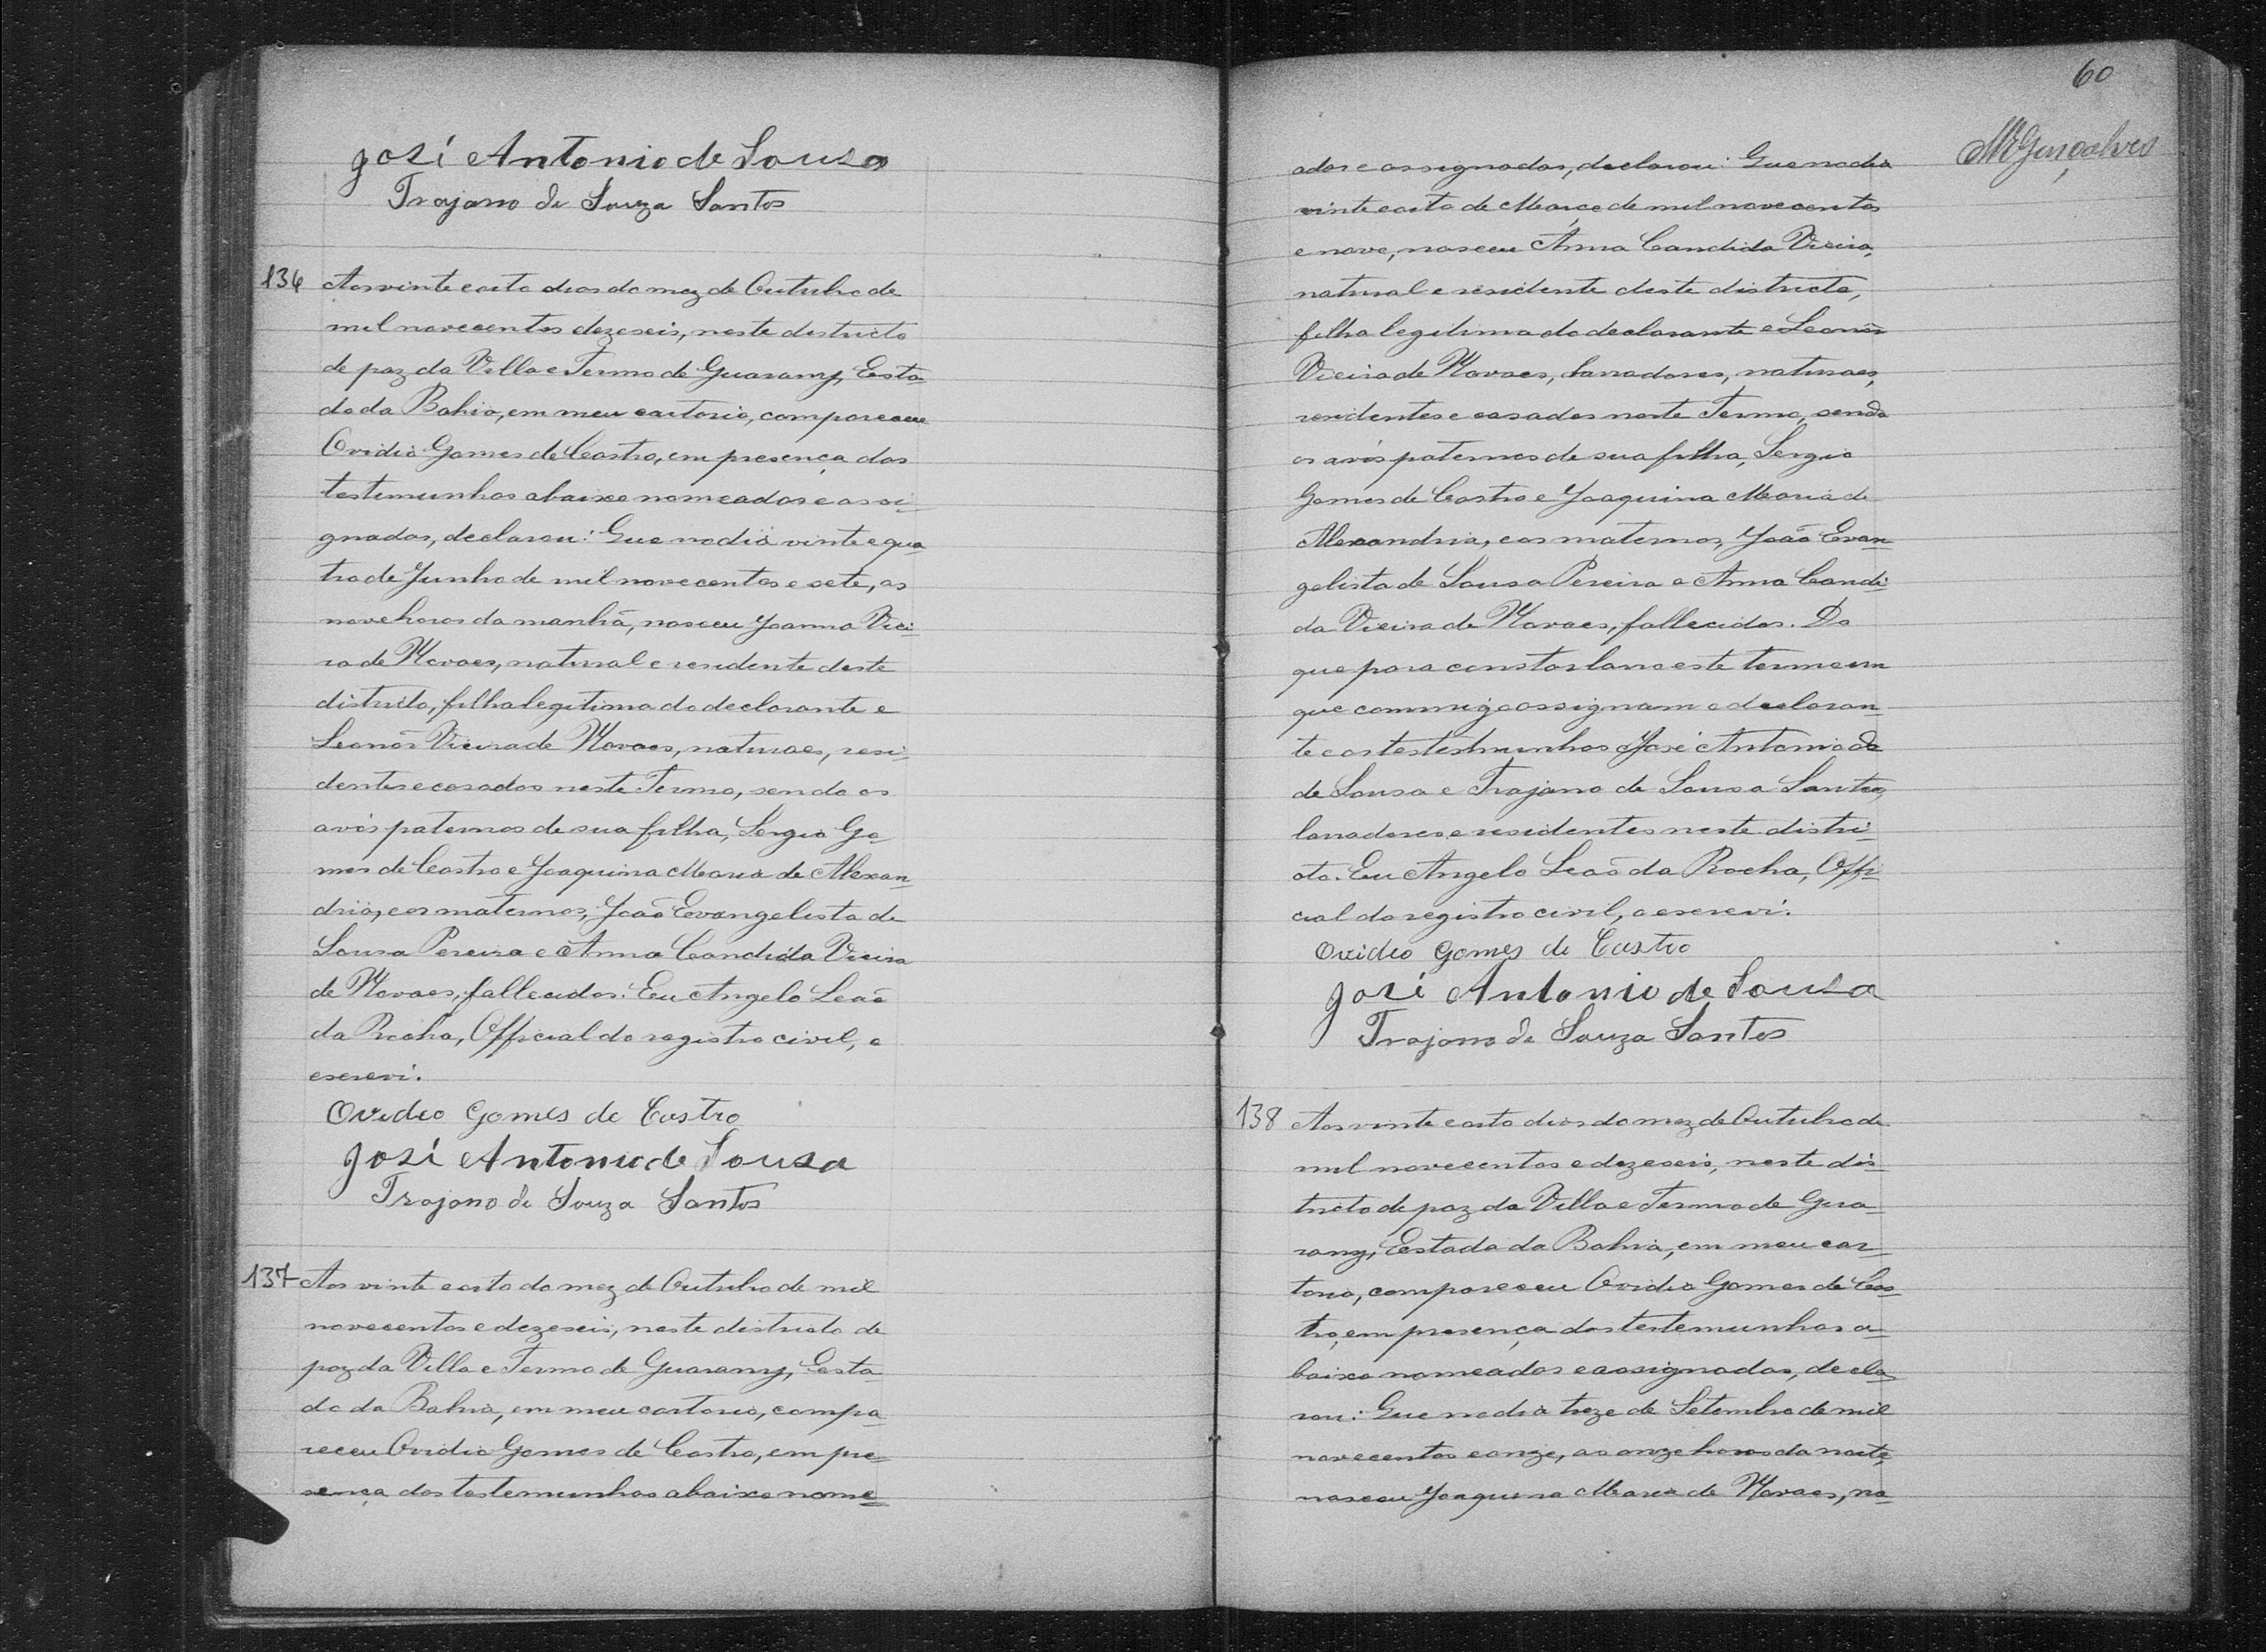 José Antonio de Sousa
Trajano de Souza Santos
136 Aos vinte e oito dias do mez de Outubro de
mil novecentos dezeseis, neste districto
de paz da Villa e Termo de Guarany, Esta-
do da Bahia, em meu cartorio, compareceu
Ovidio Gomes de Castro, em presença das
testemunhas abaixo nomeadas e assi-
gnadas, declarou: Que no dia vinte e qua
tro de Junho de mil novecentos e sete, as
nove horas da manhã, nasceu Joanna Viei-
ra de Novaes, natural e residente deste
districto, filha legitima do declarante e
Leonôr Vieira de Novaes, naturaes, resi-
dentes e casados neste Termo, sendo os
avós paternos de sua filha, Sergio Go-
mes de Castro e Joaquina Maria de Alexan-
dria, e os maternos, João Evangelista de
Sousa Pereira e Anna Candida Vieira
de Novaes, fallecidos. Eu Angelo Leão
da Rocha, Official do registro civil, o
escrevi.
Ovidio Gomes de Castro
José Antonio de Sousa
Trajano de Souza Santos
137 Aos vinte e oito do mez de Outubro de mil
novecentos e dezeseis, neste districto de
paz da Villa e Termo de Guarany, Esta-
do da Bahia, em meu cartorio, compa-
receu Ovidio Gomes de Castro, em pre-
sença das testemunhas abaixo nome-
60
adas e assignadas, declarou: Que no dia
vinte e oito de Março de mil novecentos
e nove, nasceu Anna Candida Vieira,
natural e residente deste districto,
filha legitima do declarante e Leonôr
Vieira de Novaes, lavradores, naturaes,
residentes e casados neste Termo, sendo
os avós paternos de sua filha, Sergio
Gomes de Castro e Joaquina Maria de
Alexandria, e os maternos, João Evan-
gelista de Sousa Pereira e Anna Candi-
da Vieira de Novaes, fallecidos. Do
que para constar lavro este termo em
que commigo assignam o declaran-
te e as testestmunhas José Antonio de
de Sousa e Trajano de Sousa Santos,
lavradores e residentes neste distri-
cto. Eu Angelo Leão da Rocha, Offi-
cial do registro civil, o escrevi.
Ovidio Gomes de Castro
José Antonio de Sousa
Trajano de Souza Santos
138 Aos vinte e oito dias do mez de Outubro de
mil novecentos e dezeseis, neste dis-
tricto de paz da Villa e Termo de Gua-
rany, Estado da Bahia, em meu car-
torio, compareceu Ovidio Gomes de Cas-
tro, em presença das testemunhas a-
baixo nomeadas e assignadas, decla-
rou: Que no dia treze de Setembro de mil
novecentos e onze, as onze horas da noite,
nasceu Joaquina Maria de Novaes, na-